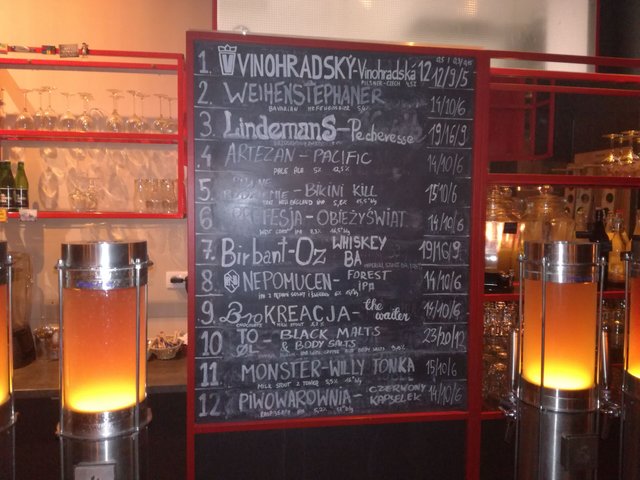 1. VINOHRADSKÝ-Vinohradská 12 12/9/5
PILSNER-CZECH
2. WEIHENSTEPHANER 14/10/6
BAVARIAN HEFEWEISSBIER
3. LindemanS-Pecheresse 19/16/9
4 ARTEZAN - PACIFIC 14/10/6
PALE ALE 5% 12,5°
5 BIKINI KILL 15/10/6
6 PROFESJA-OBIEŻYŚWIAT 14/10/6
7. Birbant-Oz WHISKEY BA 19/16/9
8 NEPOMUCEN- FOREST IPA 14/10/6
9. BroKREACJA- the waiter 15/10/6
10 TO ØL- BLACK MALTS & BODY SALTS 23/20/12
11 MONSTER-WILLY TONKA 15/10/6
MILK STOUT Z TONKĄ
12. PIWOWAROWNIA- CZERWONY KAPSELEK 14/10/6